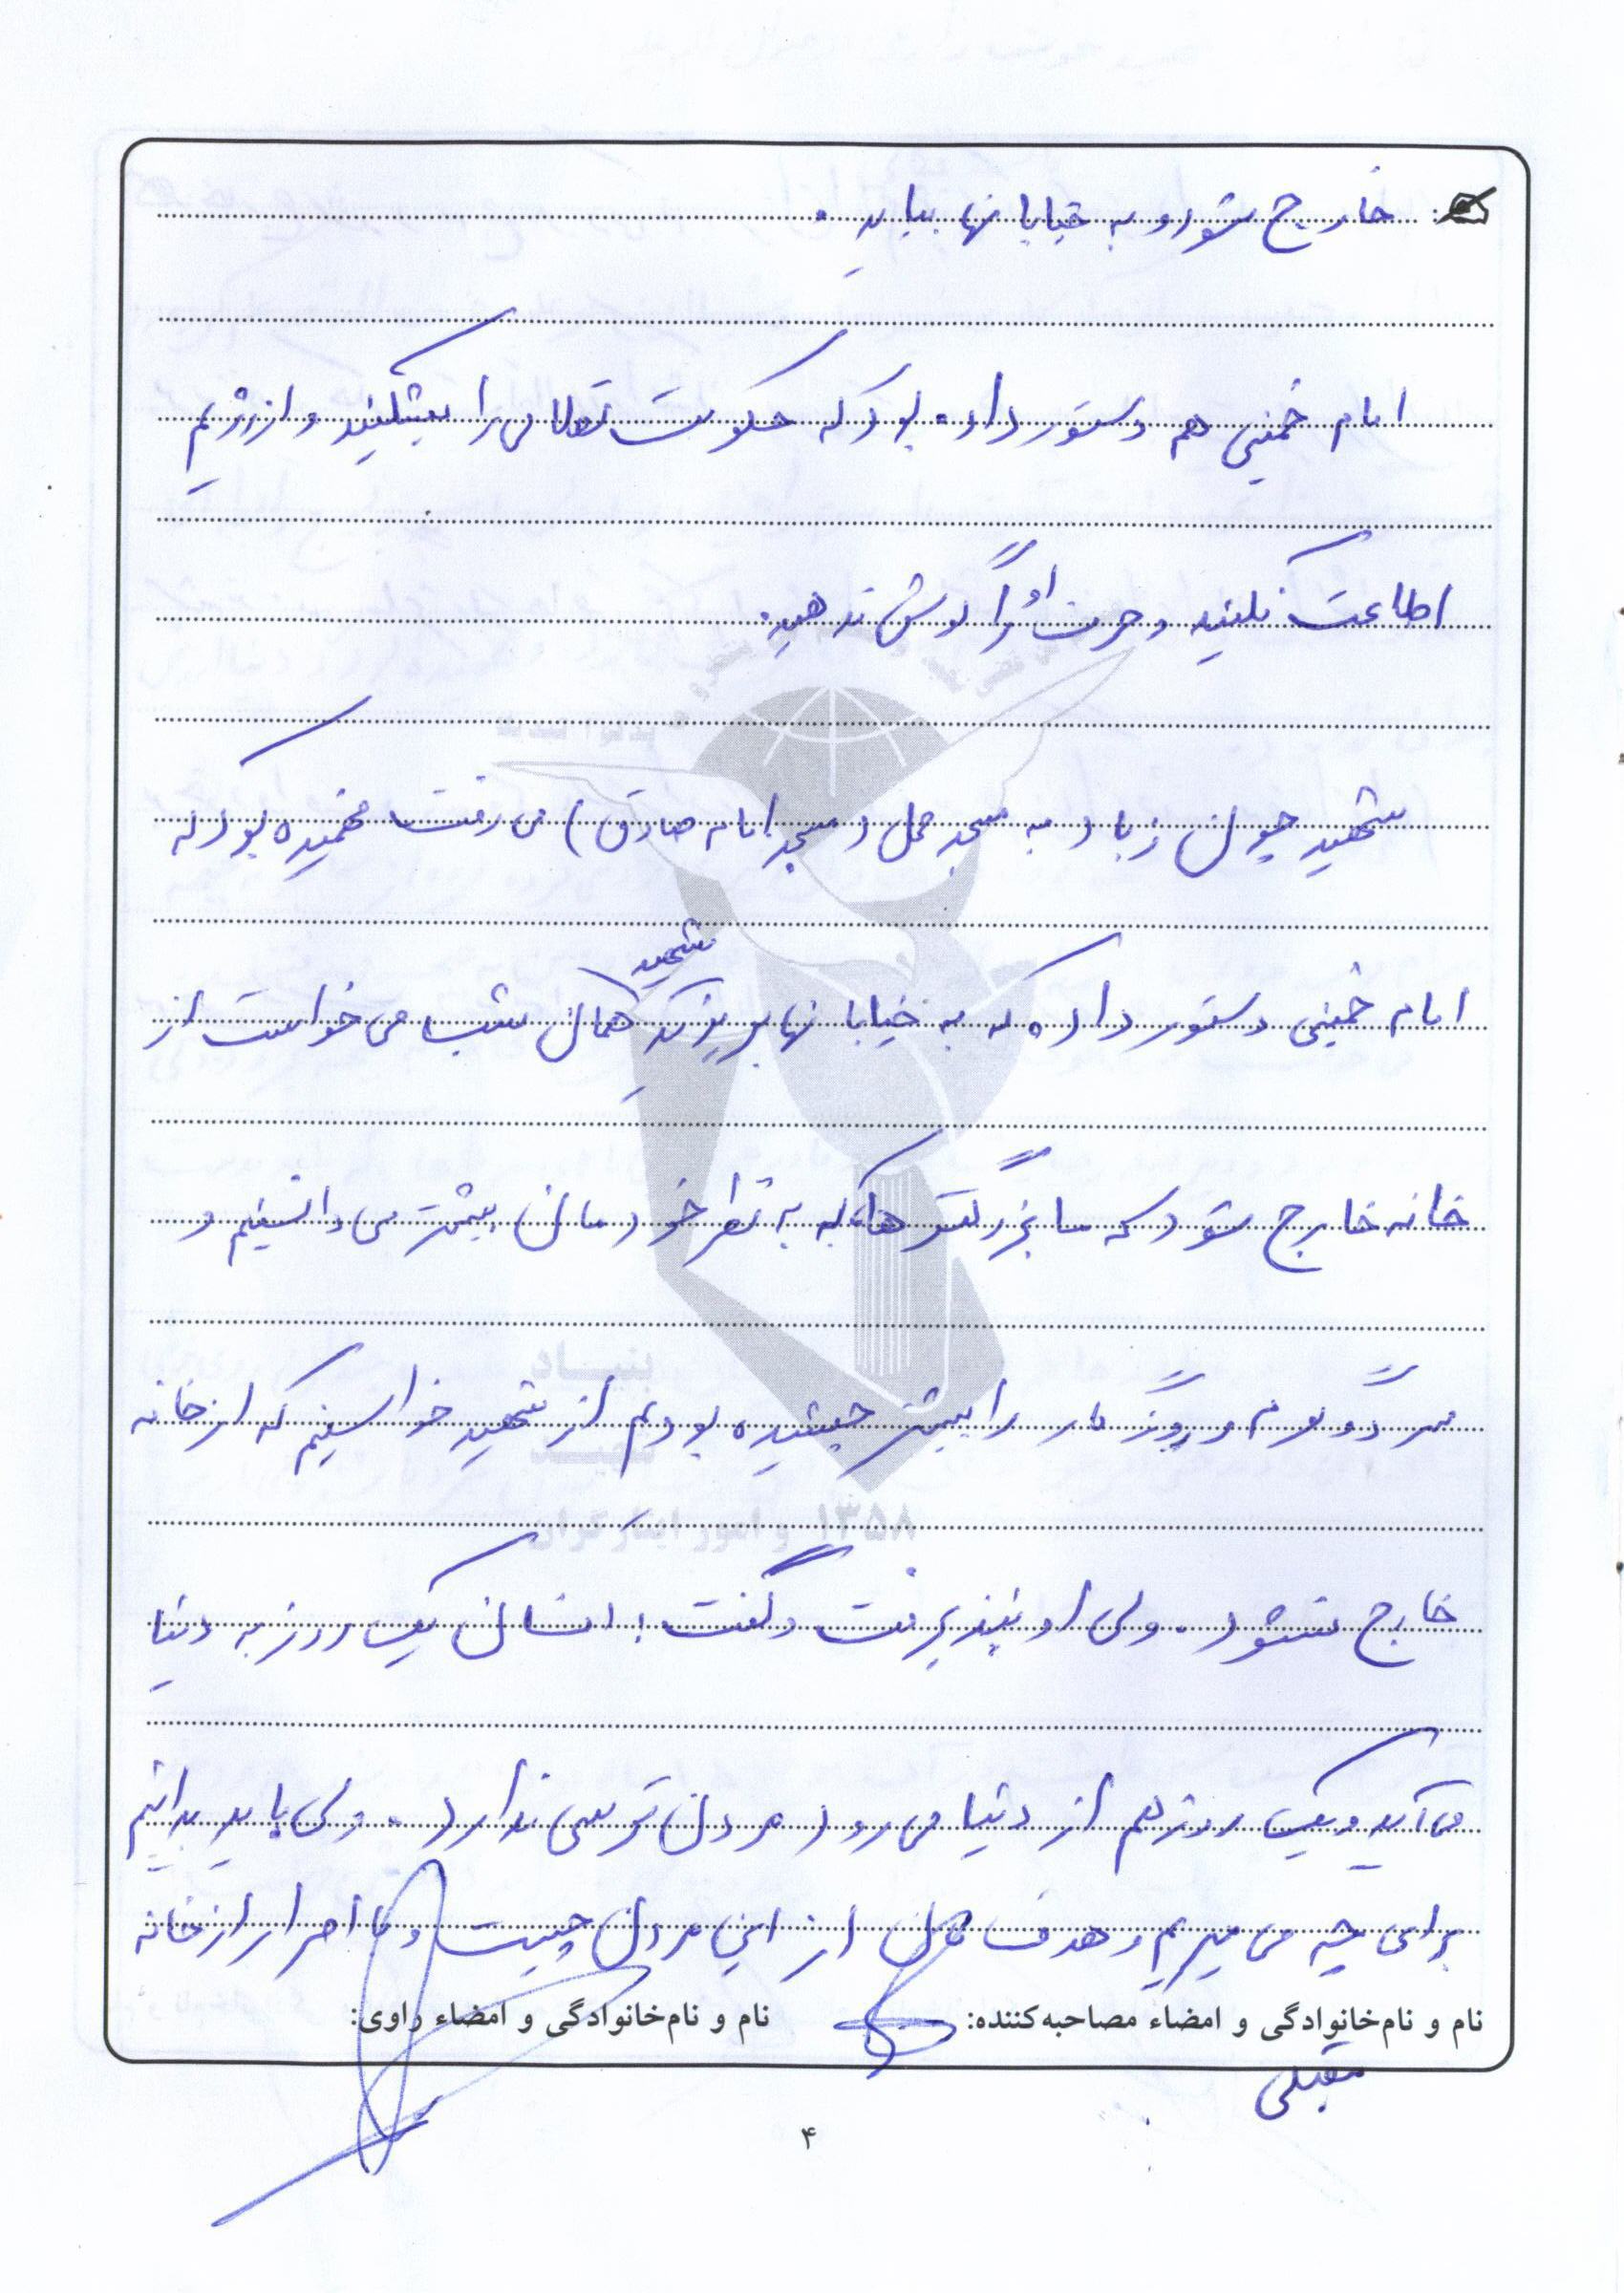 خارج شود و به خیابانها بیاید.
امام خمینی هم دستور داده بود که حکومت نظامی را بشکنید و از رژیم
اطاعت نکنید و حرف او را گوش ندهید.
شهید چون زیاد به مسجد محل (مسجد امام صادق) می رفت فهمیده بود که
شهید
امام خمینی دستور داده که به خیابانها بریزند همان شب می خواست از
خانه خارج شود که ما بزرگترها که به نظر خودمان بیشتر می دانستیم و
سرد و گرم روزگار را بیشتر چشیده بودیم از شهید خواستیم که از خانه
خارج نشود. ولی او نپذیرفت و گفت: انسان یک روز به دنیا
می آید و یک روز هم از دنیا می رود مردن ترسی ندارد. ولی باید بدانیم
برای چه می میریم و هدف مان از این مردن چیست و با اصرار از خانه
نام و نام‌خانوادگی و امضاء مصاحبه‌کننده:
نام و نام‌خانوادگی و امضاء راوی:
۴
بنیاد
شهید
و امور ایثارگران
۱۳۵۸